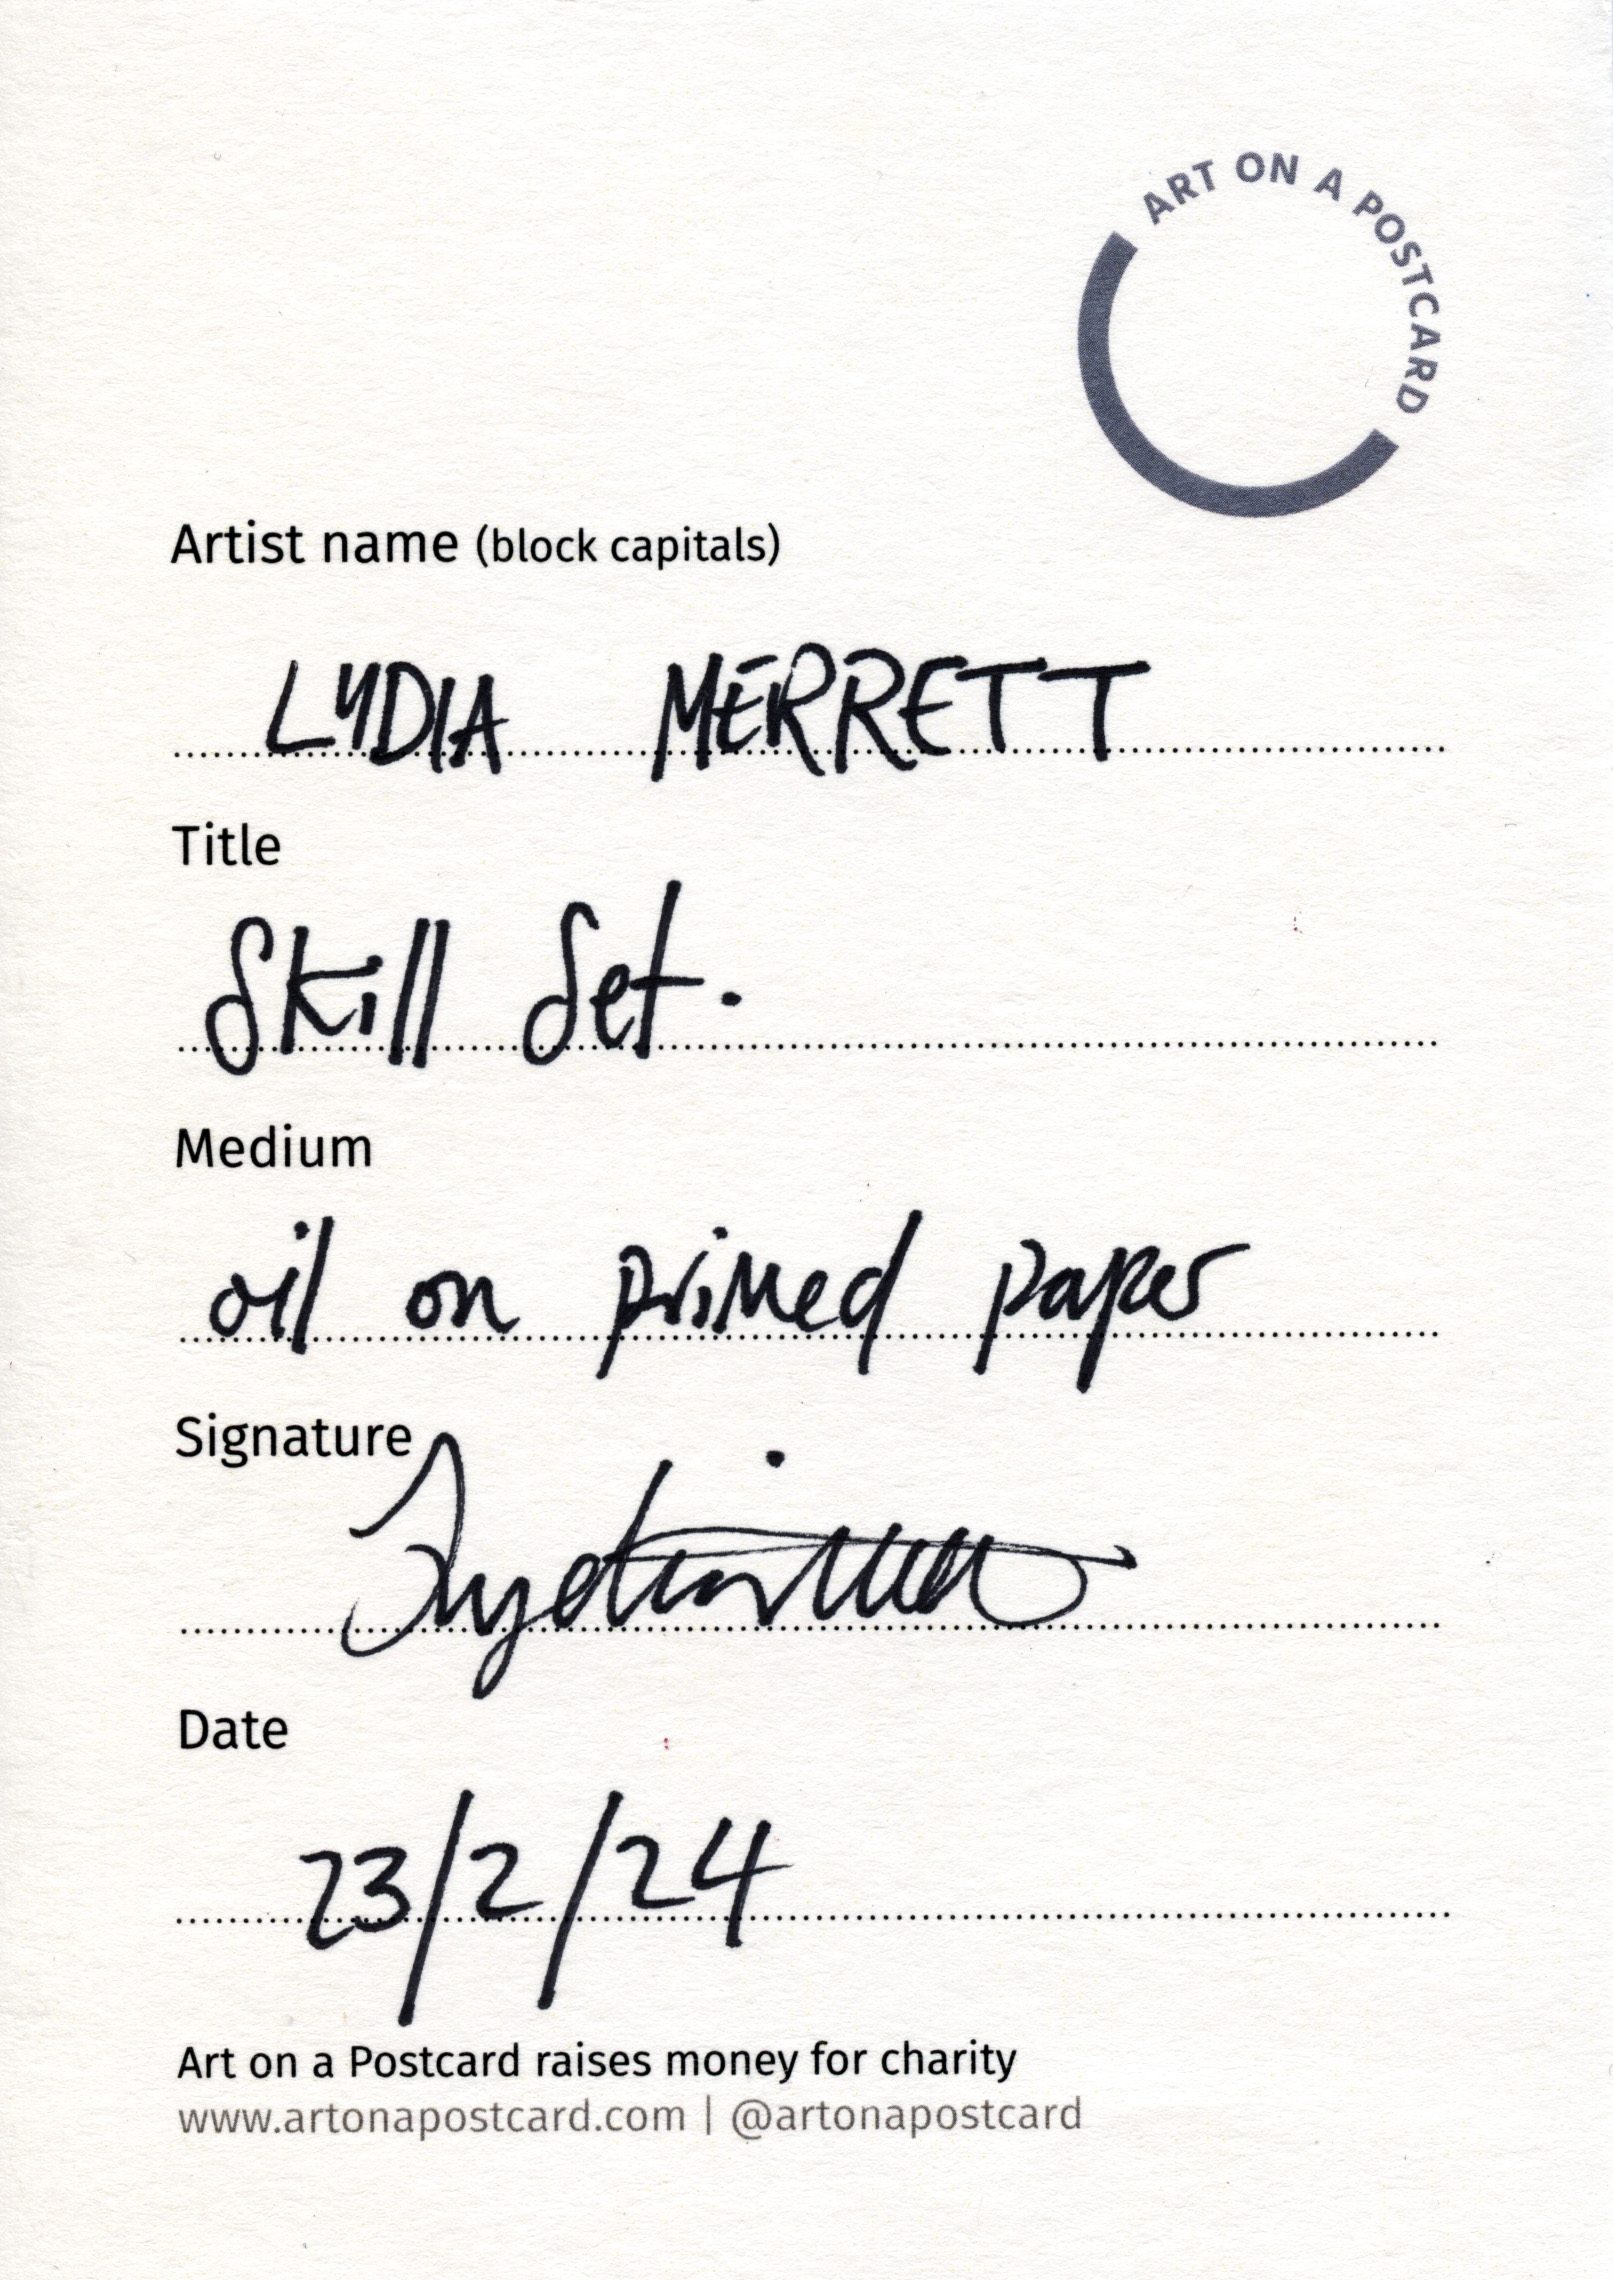 ART ON A POSTCARD
Artist name (block capitals)
LYDIA MERRETT
Title
Skill Set.
Medium
oil on primed paper
Signature
Date
23/2/24
Art on a Postcard raises money for charity
www.artonapostcard.com | @artonapostcard